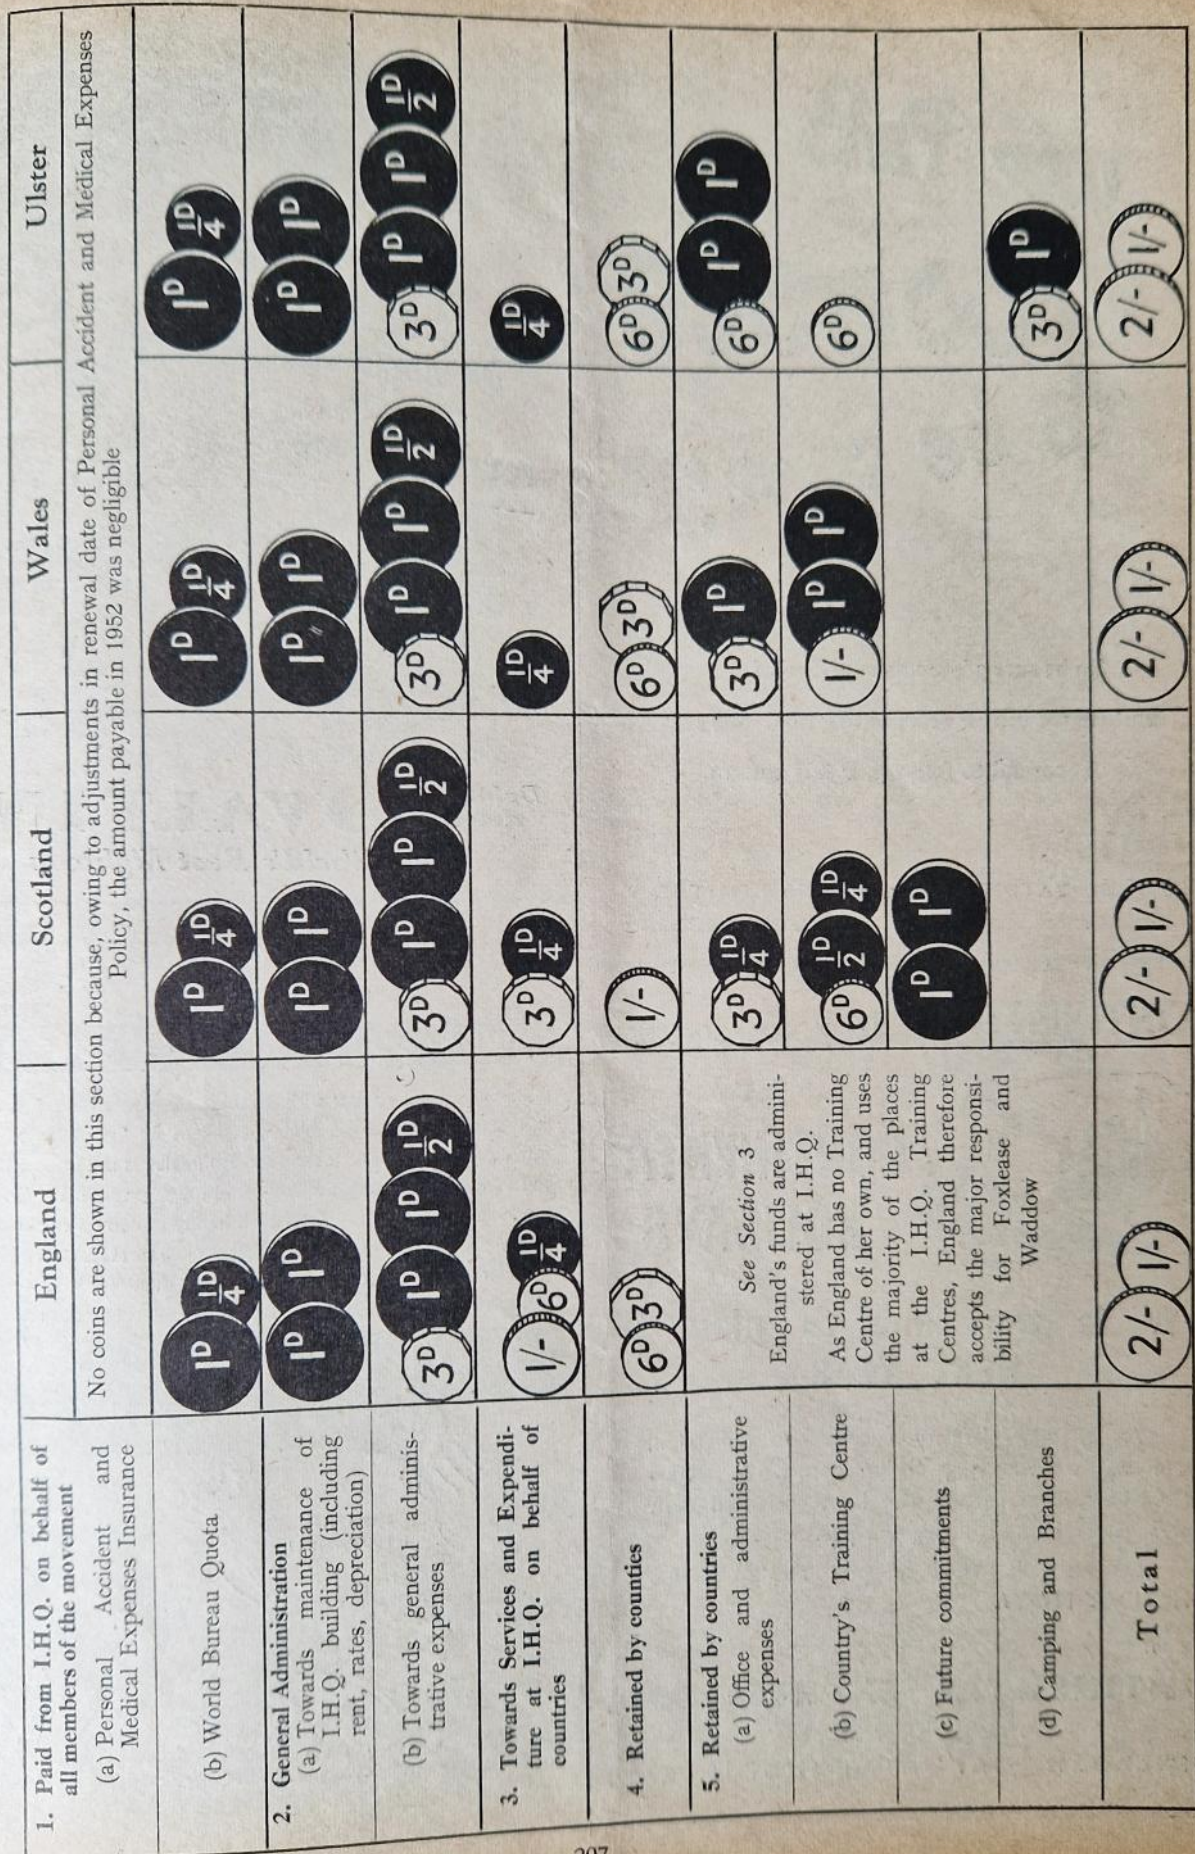 England Scotland Wales Ulster
1. Paid from I.H.Q. on behalf of
all members of the movement
(a) Personal Accident and
Medical Expenses Insurance
No coins are shown in this section because, owing to adjustments in renewal date of Personal Accident and Medical Expenses
Policy, the amount payable in 1952 was negligible
(b) World Bureau Quota
1D 1D/4 1D 1D/4 1D 1D/4 1D 1D/4
2. General Administration
(a) Towards maintenance of
I.H.Q. building (including
rent, rates, depreciation)
1D 1D 1D 1D 1D 1D 1D 1D
(b) Towards general adminis-
trative expenses
3D 1D 1D 1D/2 3D 1D 1D 1D/2 3D 1D 1D 1D/2 3D 1D 1D 1D/2
3. Towards Services and Expendi-
ture at I.H.Q. on behalf of
countries
1/- 6D 1D/4 3D 1D/4 1D/4 1D/4
4. Retained by counties
6D 3D 1/- 6D 3D 6D 3D
5. Retained by countries
(a) Office and administrative
expenses
See Section 3
England's funds are admini-
stered at I.H.Q.
3D 1D/4 3D 1D 6D 1D 1D
(b) Country's Training Centre
As England has no Training
Centre of her own, and uses
the majority of the places
at the I.H.Q. Training
Centres, England therefore
accepts the major responsi-
bility for Foxlease and
Waddow
6D 1D/2 1D/4 1/- 1D 1D 6D
(c) Future commitments
1D 1D
(d) Camping and Branches
3D 1D
Total
2/- 1/- 2/- 1/- 2/- 1/- 2/- 1/-